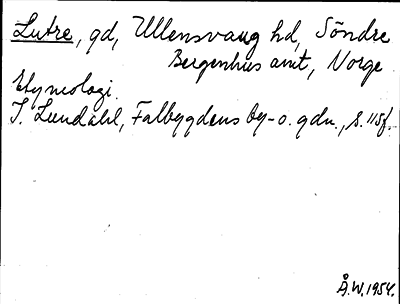 Lutre, gd, Ullensvang hd, Söndre
Bergenhus amt, Norge
Etymologi.
I. Lundahl, Falbygdens by- o. gdn., s. 115f.
Å.W. 1954.